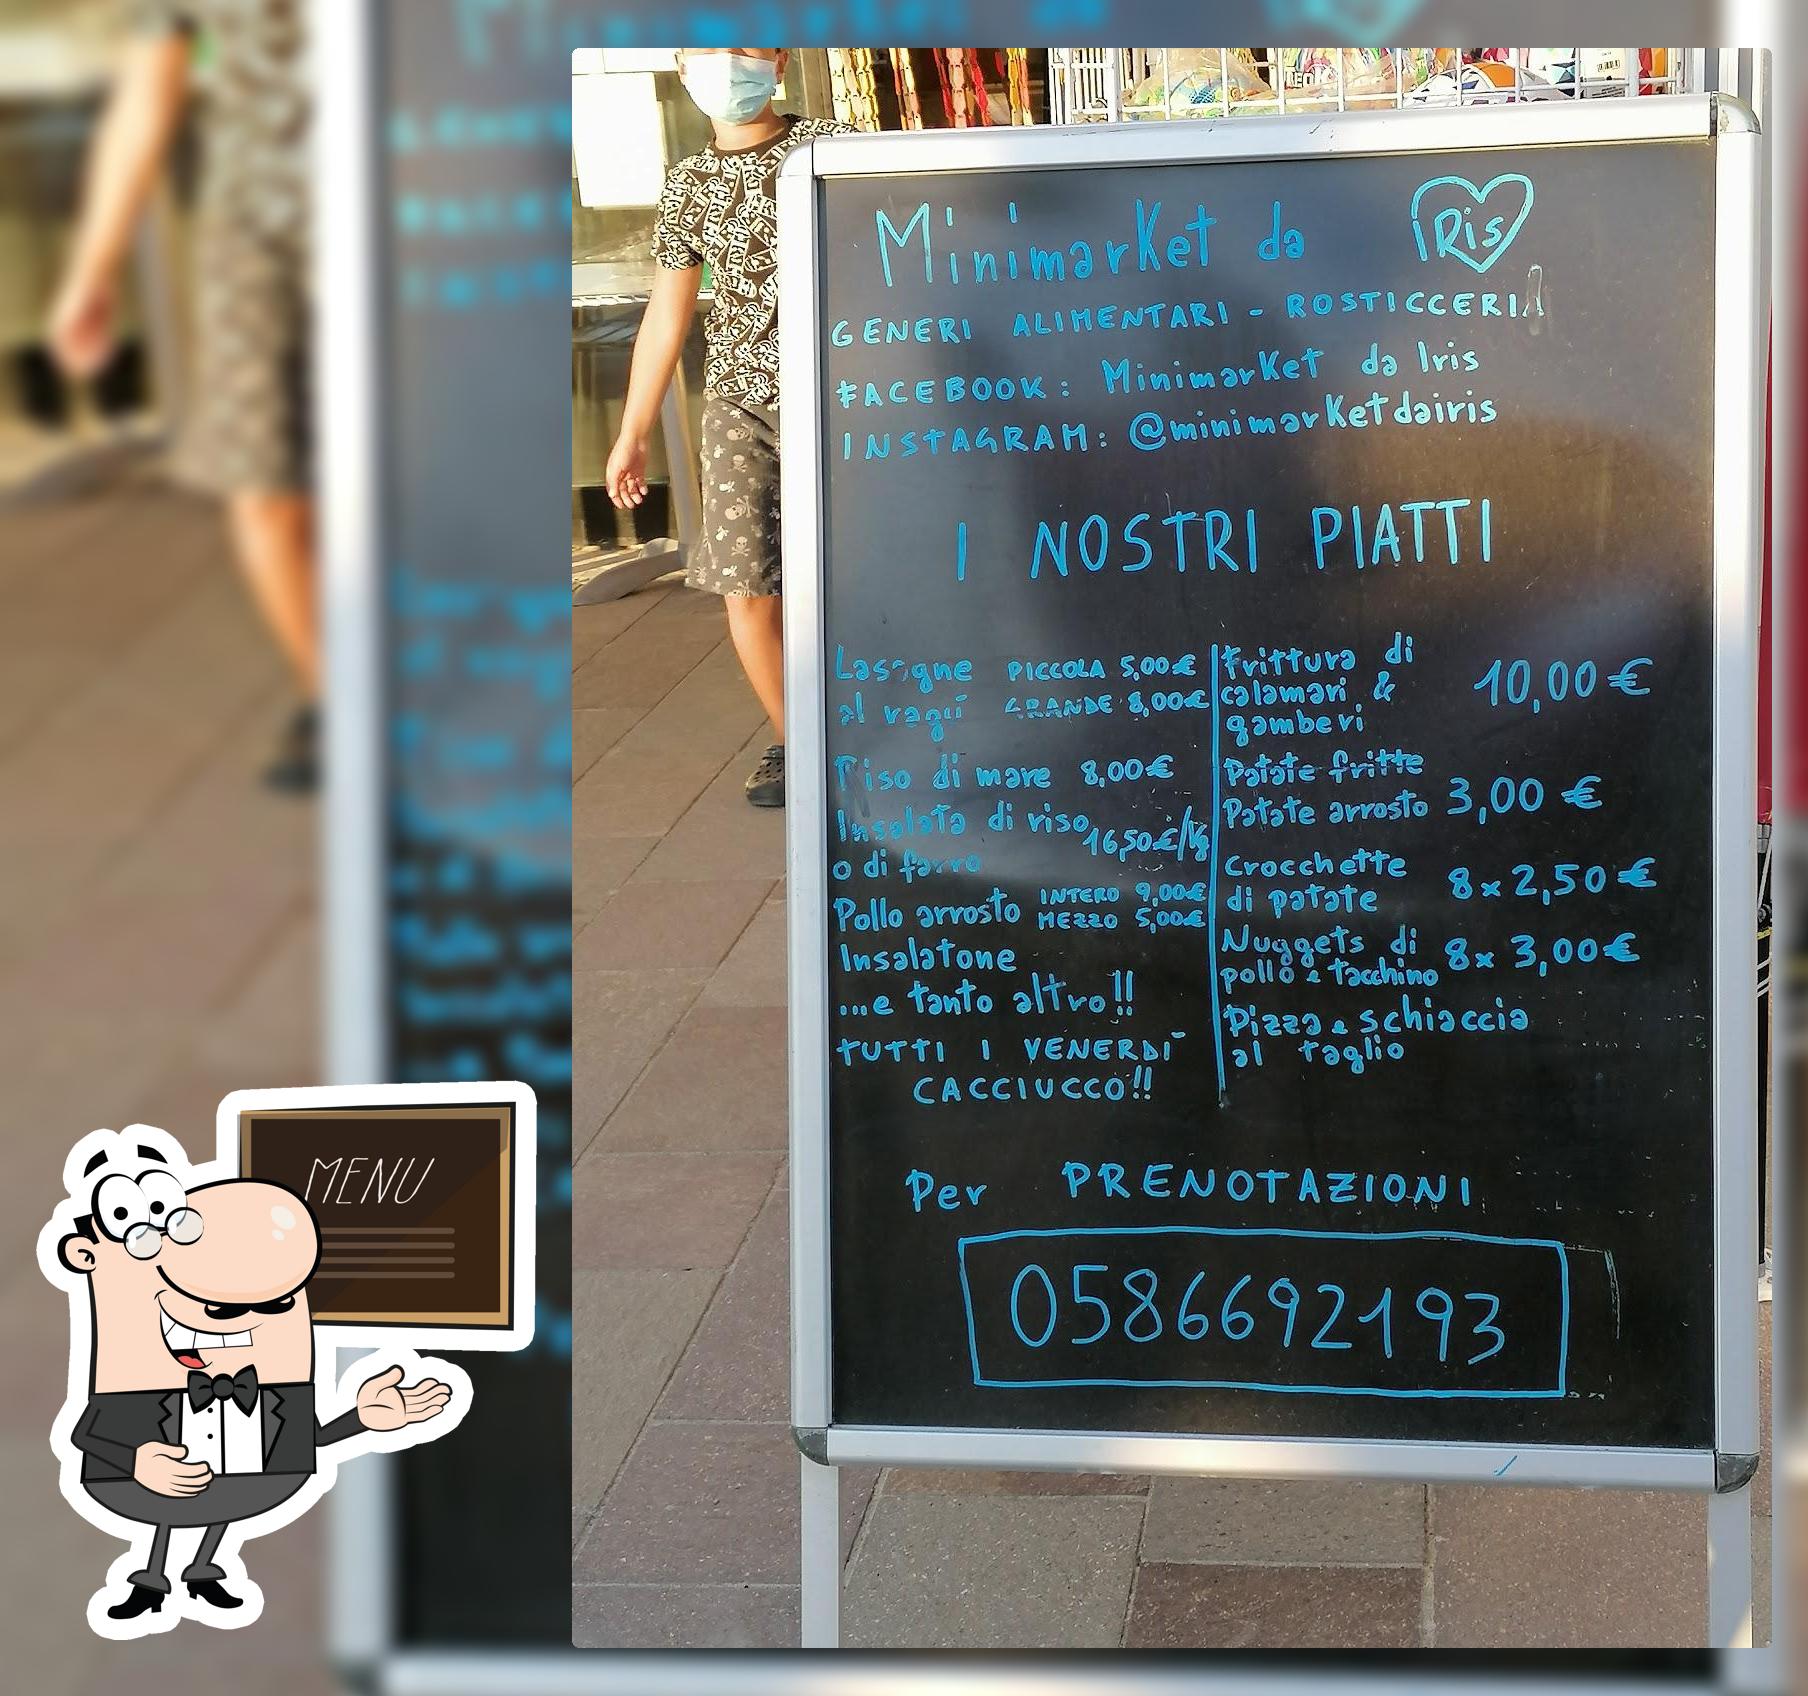 Minimarket da IRis
GENERI ALIMENTARI - ROSTICCERIA
FACEBOOK: Minimarket da Iris
INSTAGRAM: @minimarketdairis
I NOSTRI PIATTI
Lasagne PICCOLA 5,00€
al ragù GRANDE 8,00€
Riso di mare 8,00€
Insalata di riso 16,50€/kg
o di farro
Pollo arrosto INTERO 9,00€
MEZZO 5,00€
Insalatone
...e tanto altro!!
TUTTI I VENERDÌ
CACCIUCCO!!
Frittura di
calamari & 10,00 €
gamberi
Patate fritte
Patate arrosto 3,00 €
Crocchette
di patate 8x2,50 €
Nuggets di
pollo e tacchino 8x 3,00€
Pizza e schiaccia
al taglio
Per PRENOTAZIONI
0586692193
MENU